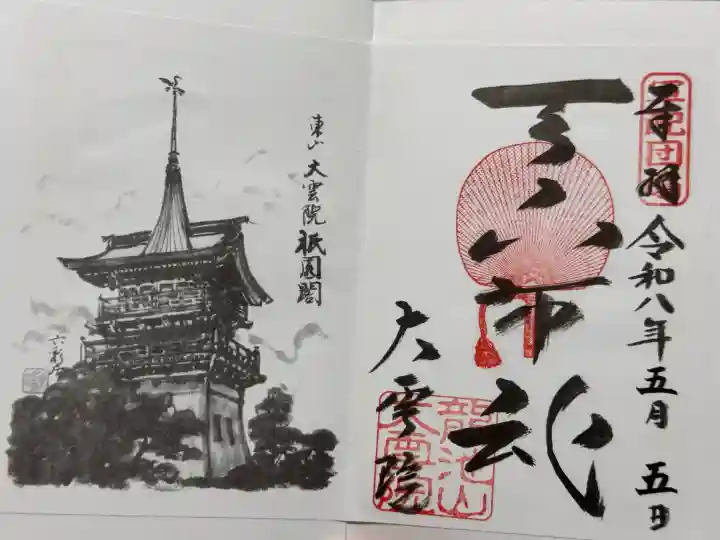 奉拝 令和八年五月五日
天下布武
大雲院
龍池山
大雲院
東山 大雲院 祇園閣